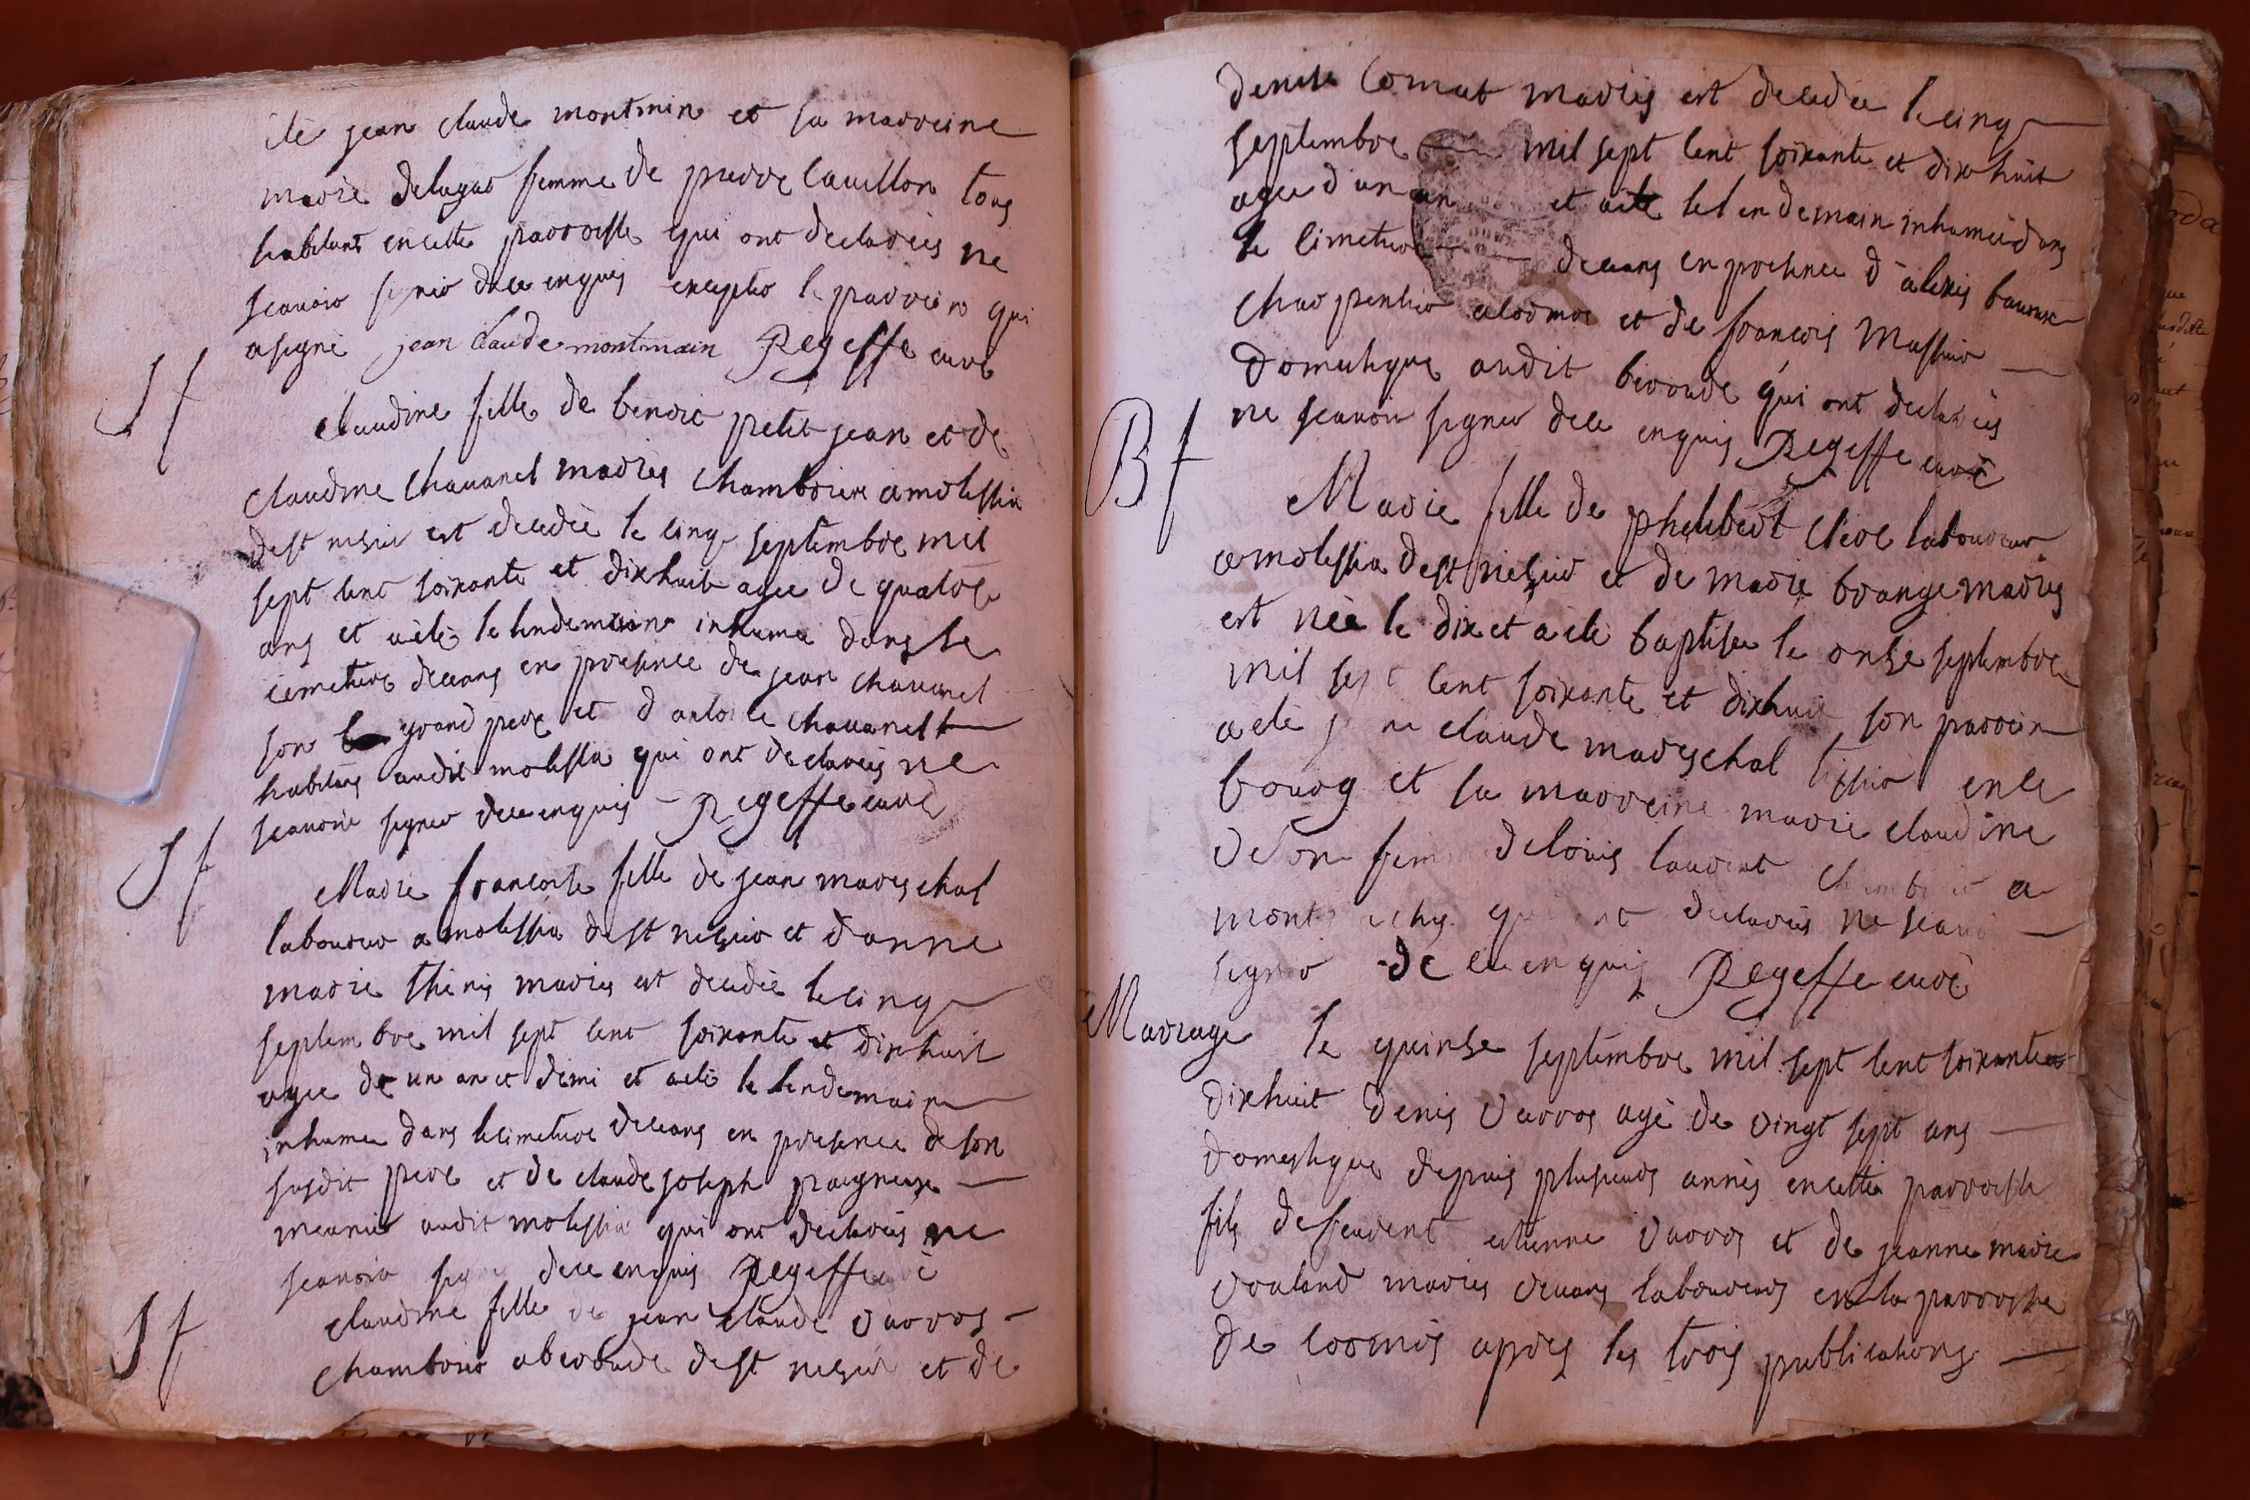 ité jean claude montmin et sa marreine
marie delugas femme de pierre Cavillon tous
habitans en cette parroisse qui ont declarés ne
scavoir signer de ce enquis excepter le parrein qui
a signé jean claude montmain Regeffe curé
Sf
claudine fille de benoit petit jean et de
claudine chavanel mariés chamborier a molissia
de st nesier est decedée le cinq septembre mil
sept cent soixante et dixhuit agée de quatorse
ans et a été le lendemain inhumée dans le
cimetiere deceans en presence de jean chavanel
son grand pere et d antoine chavanel
habitans audit molissia qui ont declarés ne
scavoir signer de ce enquis Regeffe curé
Sf
Marie francoise fille de jean mareschal
laboureur a molissia de st nesier et d anne
marie thenis mariés est decedée le cinq
septembre mil sept cent soixante et dixhuit
agée de un an et demi et a eté le lendemain
inhumée dans le cimetiere deceans en presence de son
susdit pere et de claude joseph praigneux
meunier audit molissia qui ont declarés ne
scavoir signer de ce enquis Regeffe curé
Sf
claudine fille de jean claude varros
chamborier a beroude de st nesier et de
denise Cornut mariés est decedée le cinq
septembre mil sept cent soixante et dixhuit
agée d un an et a été le lendemain inhumée dans
le cimetiere deceans en presence d alexis
charpentier a lormoe et de francois Massier
domestique audit beroude qui ont declarés
ne scavoir signer de ce enquis Regeffe curé
Bf
Marie fille de phelibert Clere laboureur
a molissia de st nesier et de marie brange mariés
est née le dix et a eté baptisée le onse septembre
mil sept cent soixante et dixhuit son parrein
a eté claude mareschal tissier en ce
bourg et sa marreine marie claudine
femme de louis laurent a
qui ont declarés ne scavoir
signer de ce enquis Regeffe curé
Mariage
le quinse septembre mil sept cent soixante et
dixhuit denis varros agé de vingt sept ans
domestique depuis plusieurs annés en cette parroisse
fils de feu etienne varros et de jeanne marie
vouland mariés vivans laboureurs en la parroisse
de cormos apres les trois publications